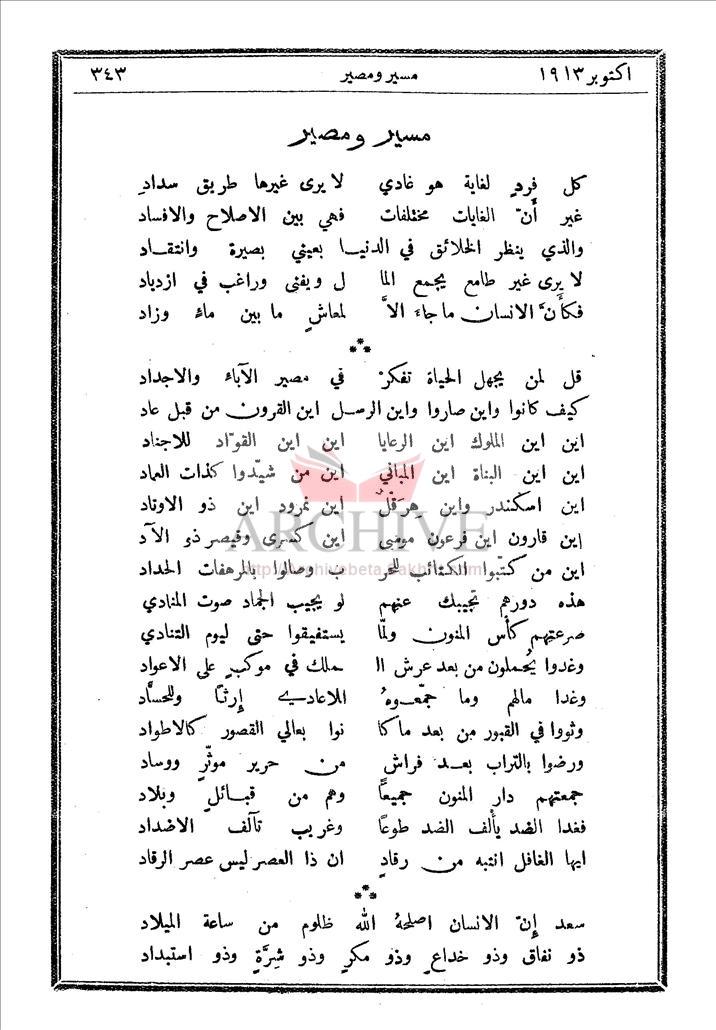 اكتوبر ١٩١٣ مسير ومصير ٣٤٣
مسير ومصير
كل فردٍ لغاية هو غادي لا يرى غيرها طريق سدادِ
غير أنّ الغايات مختلفات فهي بين الاصلاح والافساد
والذي ينظر الخلائق في الدنيا بعيني بصيرة وانتقاد
لا يرى غير طامع يجمع الما ل ويفنى وراغب في ازدياد
فكأنَّ الانسان ما جاءَ الاَّ لمعاشٍ ما بين ماء وزاد
قل لمن يجهل الحياة تفكرْ في مصير الآباء والاجداد
كيف كانوا واين صاروا واين الرسل اين القرون من قبل عاد
اين اين الملوك اين الرعايا اين اين القوّاد للاجناد
اين اين البناة اين المباني اين من شيّدوا كذات العماد
اين اسكندر واين هِرَقْلٌ اين نمرود اين ذو الاوتاد
اين قارون اين فرعون موسى اين كسرى وقيصر ذو الآد
اين من كتّبوا الكتائب للحر ب وصالوا بالمرهفات الحداد
هذه دورهم تجيبك عنهم لو يجيب الجماد صوت المنادي
صرعتهم كأس المنون ولمّا يستفيقوا حتى ليوم التنادي
وغدوا يُحملون من بعد عرش ال ملك في موكبٍ على الاعواد
وغدا مالهم وما جمّعوهُ للاعادي إرثًا وللحسَّاد
وثووا في القبور من بعد ما كا نوا بعالي القصور كالاطواد
ورضوا بالتراب بعد فراش من حرير موثّرٍ ووساد
جمعتهم دار المنون جميعًا وهم من قبائلٍ وبلاد
فغدا الضد يألف الضد طوعًا وغريب تآلف الاضداد
ايها الغافل انتبه من رقادٍ ان ذا العصر ليس عصر الرقاد
سعد إنّ الانسان اصلحهُ الله ظلوم من ساعة الميلاد
ذو نفاق وذو خداعٍ وذو مكرٍ وذو شِرَّةٍ وذو استبداد
ARCHIVE